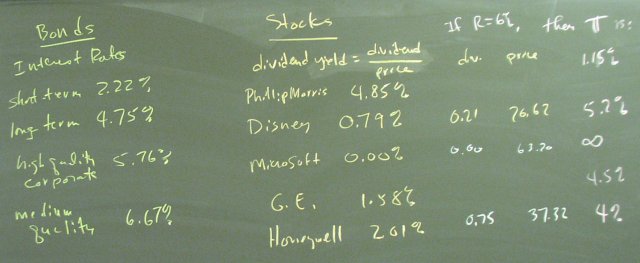 Bonds
Interest Rates
short term 2.22%
long term 4.75%
high quality corporate 5.76%
medium quality 6.67%
Stocks
dividend yield = dividend / price
Phillip Morris 4.85%
Disney 0.79%
Microsoft 0.00%
G.E. 1.58%
Honeywell 2.01%
If R=6%, then π is:
div. price 1.15%
0.21 26.62 5.2%
0.00 63.20 ∞
4.5%
0.75 37.32 4%